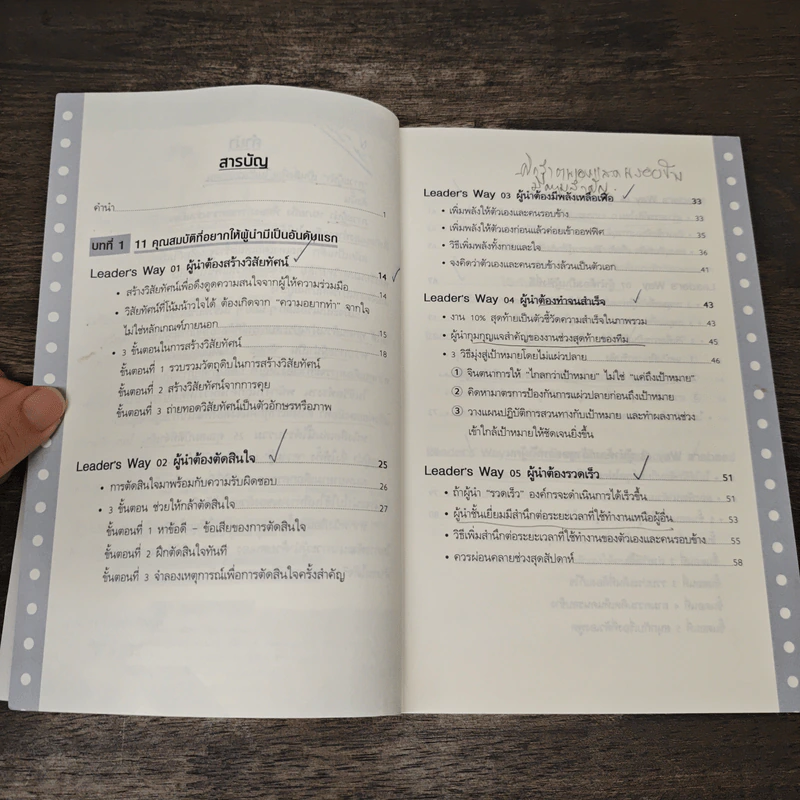 สารบัญ
คำนำ 1
บทที่ 1 11 คุณสมบัติที่อยากให้ผู้นำมีเป็นอันดับแรก
Leader's Way 01 ผู้นำต้องสร้างวิสัยทัศน์ 14
• สร้างวิสัยทัศน์เพื่อดึงดูดความสนใจจากผู้ให้ความร่วมมือ 14
• วิสัยทัศน์ที่โน้มน้าวใจได้ ต้องเกิดจาก "ความอยากทำ" จากใจ
ไม่ใช่หลักเกณฑ์ภายนอก 15
• 3 ขั้นตอนในการสร้างวิสัยทัศน์ 18
ขั้นตอนที่ 1 รวบรวมวัตถุดิบในการสร้างวิสัยทัศน์
ขั้นตอนที่ 2 สร้างวิสัยทัศน์จากการคุย
ขั้นตอนที่ 3 ถ่ายทอดวิสัยทัศน์เป็นตัวอักษรหรือภาพ
Leader's Way 02 ผู้นำต้องตัดสินใจ 25
• การตัดสินใจมาพร้อมกับความรับผิดชอบ 26
• 3 ขั้นตอน ช่วยให้กล้าตัดสินใจ 27
ขั้นตอนที่ 1 หาข้อดี - ข้อเสียของการตัดสินใจ
ขั้นตอนที่ 2 ฝึกตัดสินใจทันที
ขั้นตอนที่ 3 จำลองเหตุการณ์เพื่อการตัดสินใจครั้งสำคัญ
Leader's Way 03 ผู้นำต้องมีพลังเหลือเฟือ 33
• เพิ่มพลังให้ตัวเองและคนรอบข้าง 33
• เพิ่มพลังให้ตัวเองก่อนแล้วค่อยเข้าออฟฟิศ 35
• วิธีเพิ่มพลังทั้งกายและใจ 36
• จงคิดว่าตัวเองและคนรอบข้างล้วนเป็นตัวเอก 41
Leader's Way 04 ผู้นำต้องทำจนสำเร็จ 43
• งาน 10% สุดท้ายเป็นตัวชี้วัดความสำเร็จในภาพรวม 43
• ผู้นำกุมกุญแจสำคัญของงานช่วงสุดท้ายของทีม 45
• 3 วิธีมุ่งสู่เป้าหมายโดยไม่แผ่วปลาย 46
① จินตนาการให้ "ไกลกว่าเป้าหมาย" ไม่ใช่ "แค่ถึงเป้าหมาย"
② คิดหามาตรการป้องกันการแผ่วปลายก่อนถึงเป้าหมาย
③ วางแผนปฏิบัติการสวนทางกับเป้าหมาย และทำผลงานช่วง
เข้าใกล้เป้าหมายให้ชัดเจนยิ่งขึ้น
Leader's Way 05 ผู้นำต้องรวดเร็ว 51
• ถ้าผู้นำ "รวดเร็ว" องค์กรจะดำเนินการได้เร็วขึ้น 51
• ผู้นำชั้นเยี่ยมมีสำนึกต่อระยะเวลาที่ใช้ทำงานเหนือผู้อื่น 53
• วิธีเพิ่มสำนึกต่อระยะเวลาที่ใช้ทำงานของตัวเองและคนรอบข้าง 55
• ควรผ่อนคลายช่วงสุดสัปดาห์ 58